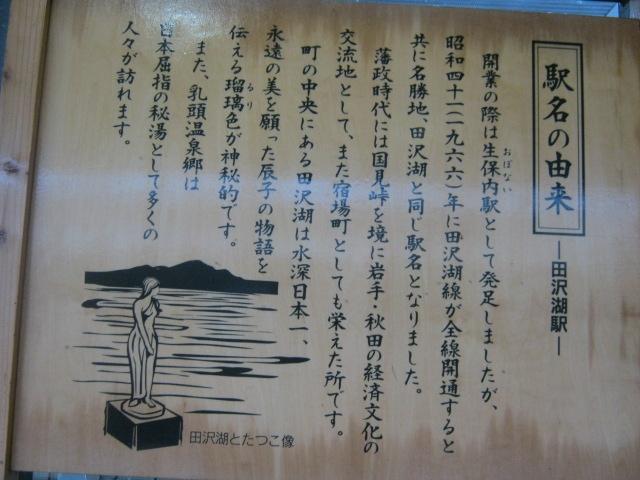 駅名の由来
―田沢湖駅―
開業の際は生保内駅として発足しましたが、
おぼない
昭和四十一(一九六六)年に田沢湖線が全線開通すると
共に名勝地、田沢湖と同じ駅名となりました。
藩政時代には国見峠を境に岩手・秋田の経済文化の
交流地として、また宿場町としても栄えた所です。
町の中央にある田沢湖は水深日本一、
永遠の美を願った辰子の物語を
伝える瑠璃色が神秘的です。
るり
また、乳頭温泉郷は
日本屈指の秘湯として多くの
人々が訪れます。
田沢湖とたつこ像